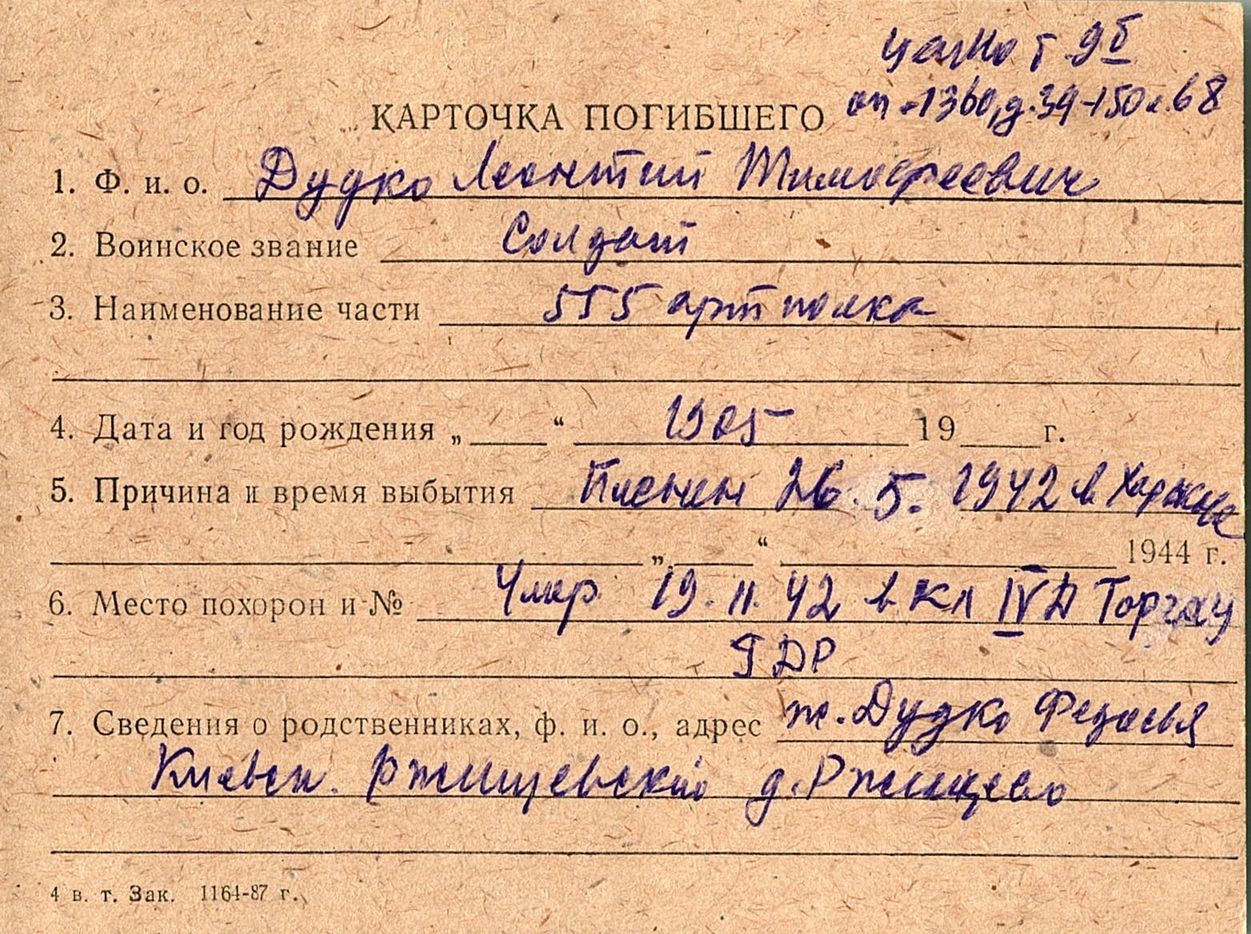 цамо т 9б
КАРТОЧКА ПОГИБШЕГО оп-1360, д.39-150 л.68
1. Ф. и. о. Дудко Леонтий Тимофеевич
2. Воинское звание Солдат
3. Наименование части 555 артполка
4. Дата и год рождения „ “ 1905 19 г.
5. Причина и время выбытия Пленен 26.5. 1942 в Харькове
„ “ 1944 г.
6. Место похорон и № Умер 19.11.42 в кл IV Д Торгау
ГДР
7. Сведения о родственниках, ф. и. о., адрес ж. Дудко
Киевск. Ржищевский д. Ржищево
4 в. т. Зак. 1164-87 г.